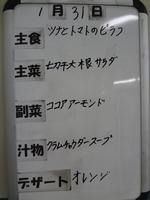 1月31日
主食 ツナとトマトのピラフ
主菜 セカチ大根サラダ
副菜 ココアアーモンド
汁物 クラムチャウダースープ
デザート オレンジ